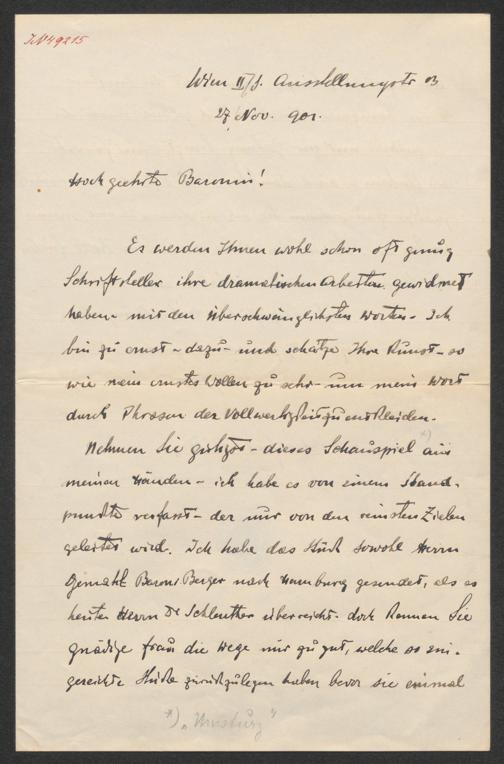 IN 49215
Wien II/1. Ausstellungstr 03
27 Nov. 901.
Hochgeehrte Baronin!
Es werden Ihnen wohl schon oft genug
Schriftsteller ihre dramatischen Arbeiten gewidmet
haben – mit den überschwänglichsten Worten – Ich
bin zu ernst – dazu – und schätze Ihre Kunst – so
wie mein ernstes Wollen zu sehr – um mein Wort
durch Phrasen der Vollwertigkeit zu entkleiden.
Nehmen Sie gütigst – dieses Schauspiel *) aus
meinen Händen – ich habe es von einem Stand-
punkte verfasst – der nur von den reinsten Zielen
geleitet wird. Ich habe das Stück sowohl Herrn
Gemahl Baron Berger nach Hamburg gesendet, als es
heute Herrn Dr Schlenther überreicht – doch kennen Sie
gnädige Frau die Wege nur zu gut, welche so ein-
gereichte Stücke zurückzulegen haben bevor sie einmal
*) „Umsturz"